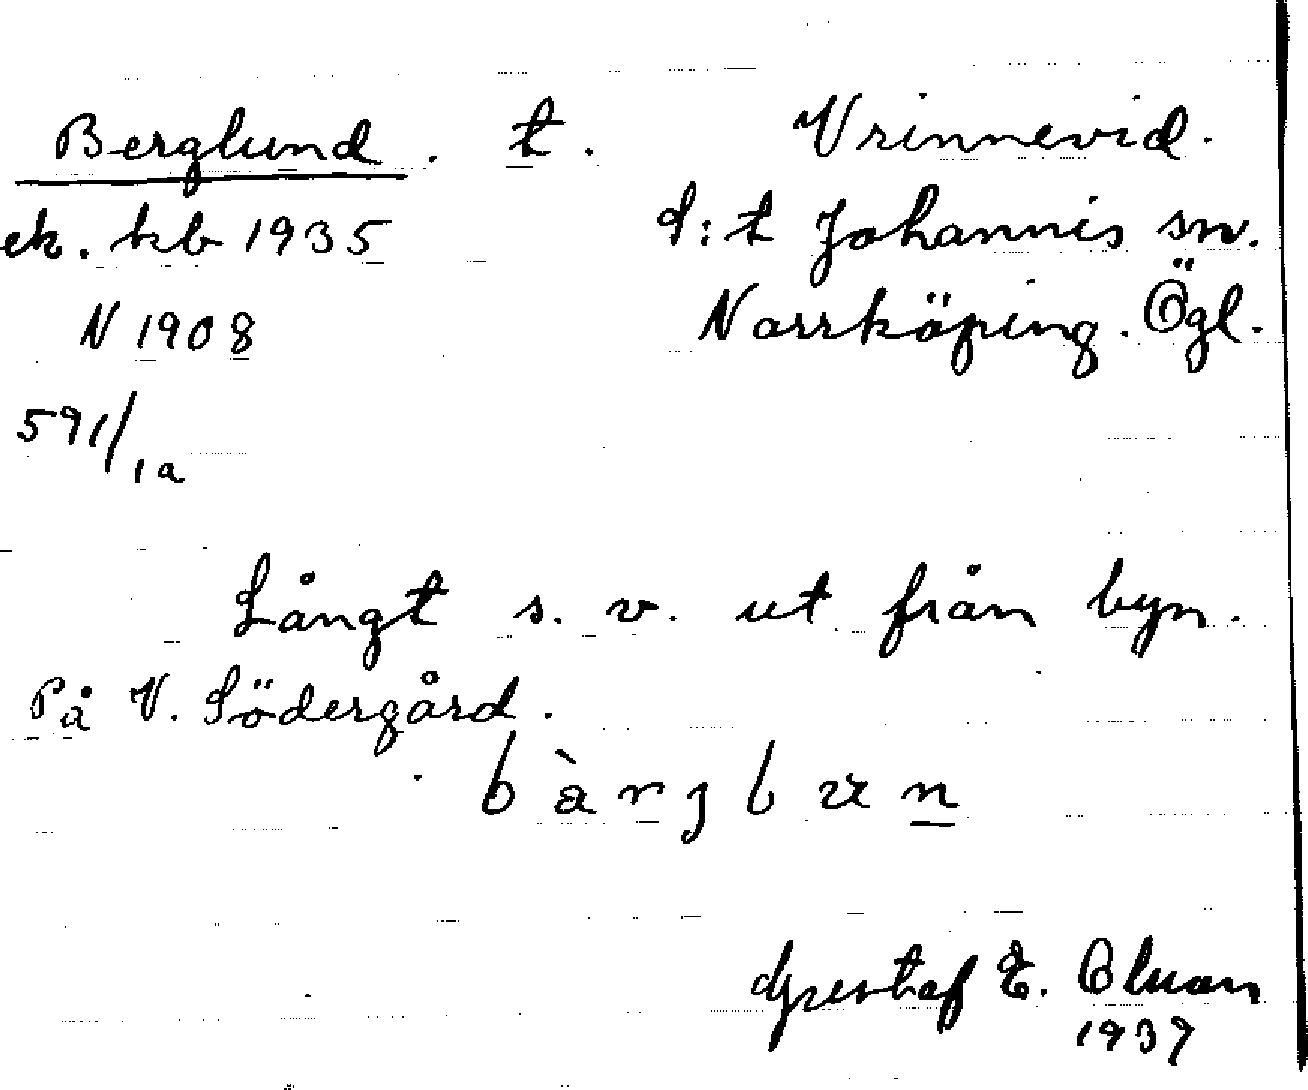 Berglund. t. Vrinnevid.
ek. kb 1935 S:t Johannis sn.
N 1908 Norrköping. Ögl.
591/1a
Långt s. v. ut från byn.
På V. Södergård.
bàrjlun
Gustaf E.
1937